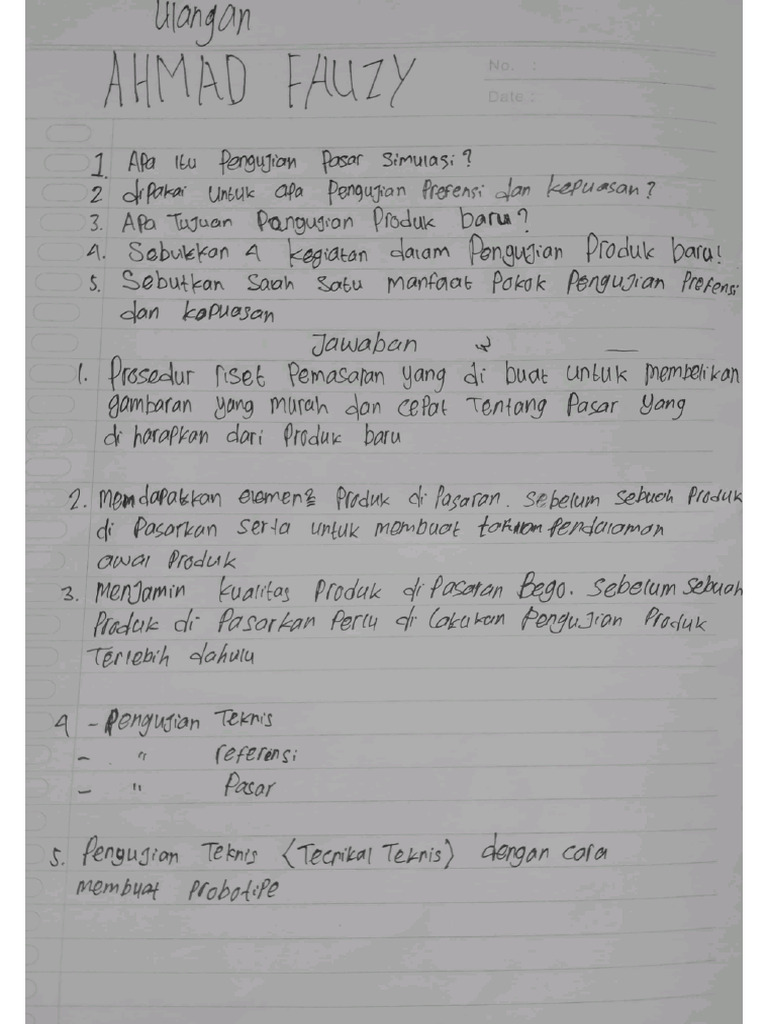 Ulangan
AHMAD FAUZY
No. :
Date :
1. Apa itu Pengujian Pasar Simulasi?
2 dipakai untuk apa Pengujian Prefensi dan kepuasan?
3. Apa Tujuan Pangugian Produk baru?
4. Sebukkan 4 kegiatan dalam Pengujian Produk baru!
5. Sebutkan Saah Satu manfaat Pokok Pengujian Prefensi
dan kepuasan
Jawaban
1. Prosedur riset Pemasaran yang di buat untuk membelikan
gambaran yang murah dan cepat Tentang Pasar yang
di harapkan dari Produk baru
2. Mendapatkkan elemen2 Produk di Pasaran. Sebelum sebuah Produk
di Pasarkan serta untuk membuat Pendalaman
awal Produk
3. Menjamin kualitas Produk di Pasaran Bego. Sebelum sebuah
Produk di Pasarkan Perlu di lakukan Pengujian Produk
Terlebih dahulu
4 - Pengujian Teknis
- " referensi
- " Pasar
5. Pengujian Teknis (Tecnikal Teknis) dengan cara
membuat Probotipe